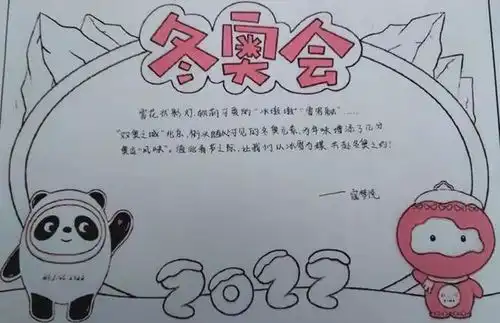 冬奥会
雪花状彩灯、软萌可爱的“冰墩墩”“雪容融”……
“双奥之城”北京,街头随处可见的冬奥元素,为年味增添了几分
奥运“风味”。值此春节之际,让我们以冰雪为媒,共赴冬奥之约!
BEIJING 2022
2022